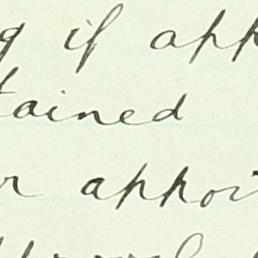 g if app
tained
r appoi